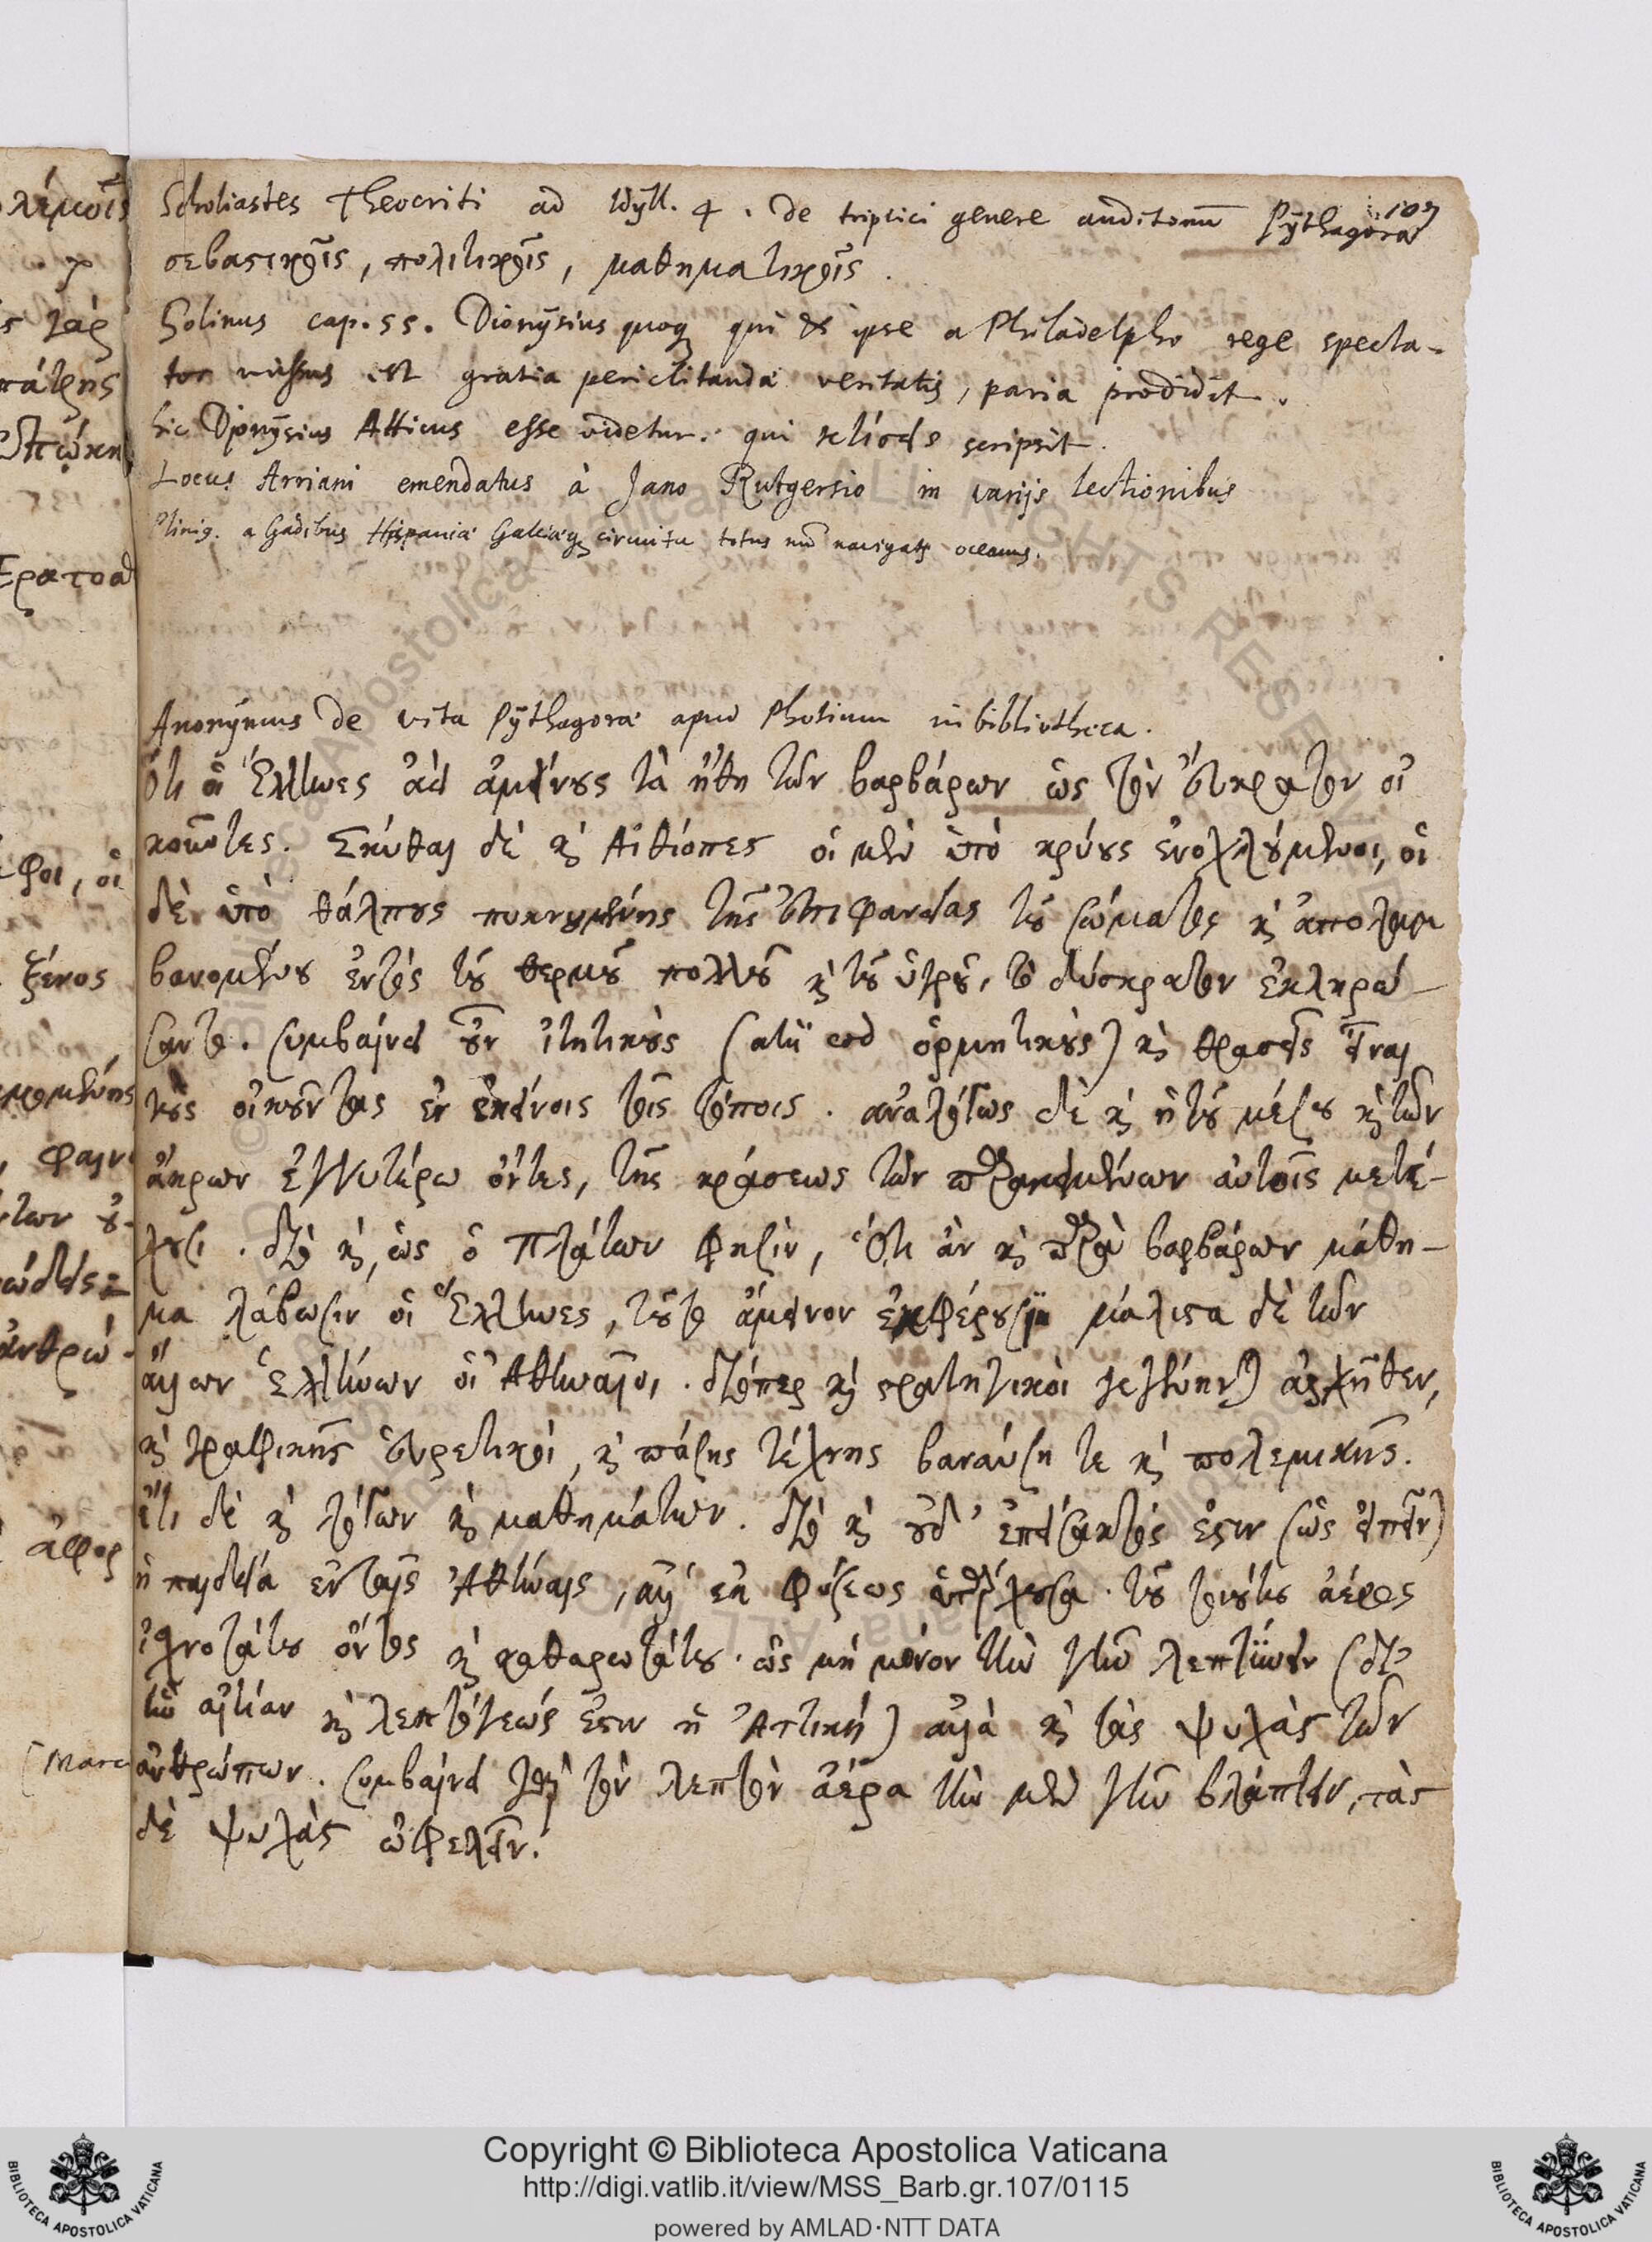 109
Scholiastes Theocriti ad Idyll. 4. de triplici genere auditorum Pythagoræ
σεβαστικοῖς, πολιτικοῖς, μαθηματικοῖς.
Solinus cap. 55. Dionysius quoq qui & ipse a Philadelpho rege specta-
tor missus est gratia periclitandæ veritatis, paria prodidit.
hic Dionysius Atticus esse videtur. qui scripsit.
Locus Arriani emendatus à Jano Rutgersio in varijs lectionibus
Plinig. a Gadibus Hispaniæ Galliæq circuitu totus navigatᵘʳ oceanus.
Anonymus de vita Pythagoræ apud Photium in bibliotheca.
Ὅτι οἱ Ἕλληνες ἀεὶ ἀμείνους τὰ ἤθη τῶν βαρβάρων ὡς τὸν εὔκρατον οἰ
κοῦντες. Σκύθαι δὲ καὶ Αἰθίοπες οἱ μὲν ὑπὸ κρύους ἐνοχλούμενοι, οἱ
δὲ ὑπὸ θάλπους πυκνουμένης τῆς ἐπιφανείας τοῦ σώματος καὶ ἀπολαμ
βανομένου ἐντὸς τοῦ θερμοῦ πολλοῦ καὶ τοῦ ὑγροῦ, τὸ δύσκρατον ἐκληρώ-
σαντο. συμβαίνει οὖν ἰτητικοὺς (alii cod ὁρμητικοὺς) καὶ θρασεῖς εἶναι
τοὺς οἰκοῦντας ἐν ἐκείνοις τοῖς τόποις. ἀναλόγως δὲ καὶ οἱ τοῦ μέσου καὶ τῶν
ἄκρων ἐγγυτέρω ὄντες, τῆς κράσεως τῶν παρακειμένων αὐτοῖς μετέ-
χουσι. διὸ καὶ, ὡς ὁ Πλάτων φησὶν, ὅτι ἂν καὶ παρὰ βαρβάρων μάθη-
μα λάβωσιν οἱ Ἕλληνες, τοῦτο ἄμεινον ἐκφέρουσιν μάλιστα δὲ τῶν
ἄλλων Ἑλλήνων οἱ Ἀθηναῖοι. διόπερ καὶ στρατηγικοὶ γεγένηνται ἀρχῆθεν,
καὶ γραφικῆς εὑρετικοὶ, καὶ πάσης τέχνης βαναύσου τε καὶ πολεμικῆς.
ἔτι δὲ καὶ λόγων καὶ μαθημάτων. διὸ καὶ οὐδ’ ἐπείσακτός ἐστιν (ὡς εἰπεῖν)
ἡ παιδεία ἐν ταῖς Ἀθήναις, ἀλλ’ ἐκ φύσεως ὑπάρχουσα. τοῦ τοιούτου ἀέρος
ἰσχνοτάτου ὄντος καὶ καθαρωτάτου. ὡς μὴ μόνον τὴν γῆν λεπτύνειν (δι’
ἣν αἰτίαν καὶ λεπτόγεώς ἐστιν ἡ Ἀττική) ἀλλὰ καὶ τὰς ψυχὰς τῶν
ἀνθρώπων. συμβαίνει γὰρ τὸν λεπτὸν ἀέρα τὴν μὲν γῆν βλάπτειν, τὰς
δὲ ψυχὰς ὠφελεῖν.
Copyright © Biblioteca Apostolica Vaticana
http://digi.vatlib.it/view/MSS_Barb.gr.107/0115
powered by AMLAD·NTT DATA
BIBLIOTECA APOSTOLICA VATICANA
BIBLIOTECA APOSTOLICA VATICANA